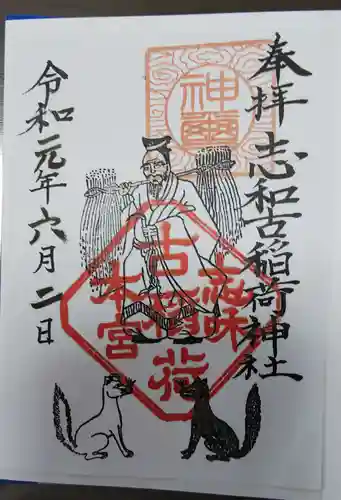 奉拝 志和古稲荷神社
令和元年六月二日
神
古稲荷
本宮